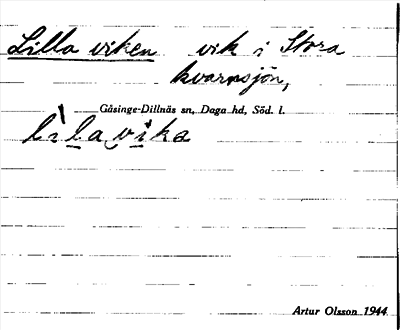 Lilla viken vik i Stora
kvarnsjön,
Gåsinge-Dillnäs sn, Daga hd, Söd. l.
lìlavika
Artur Olsson 1944